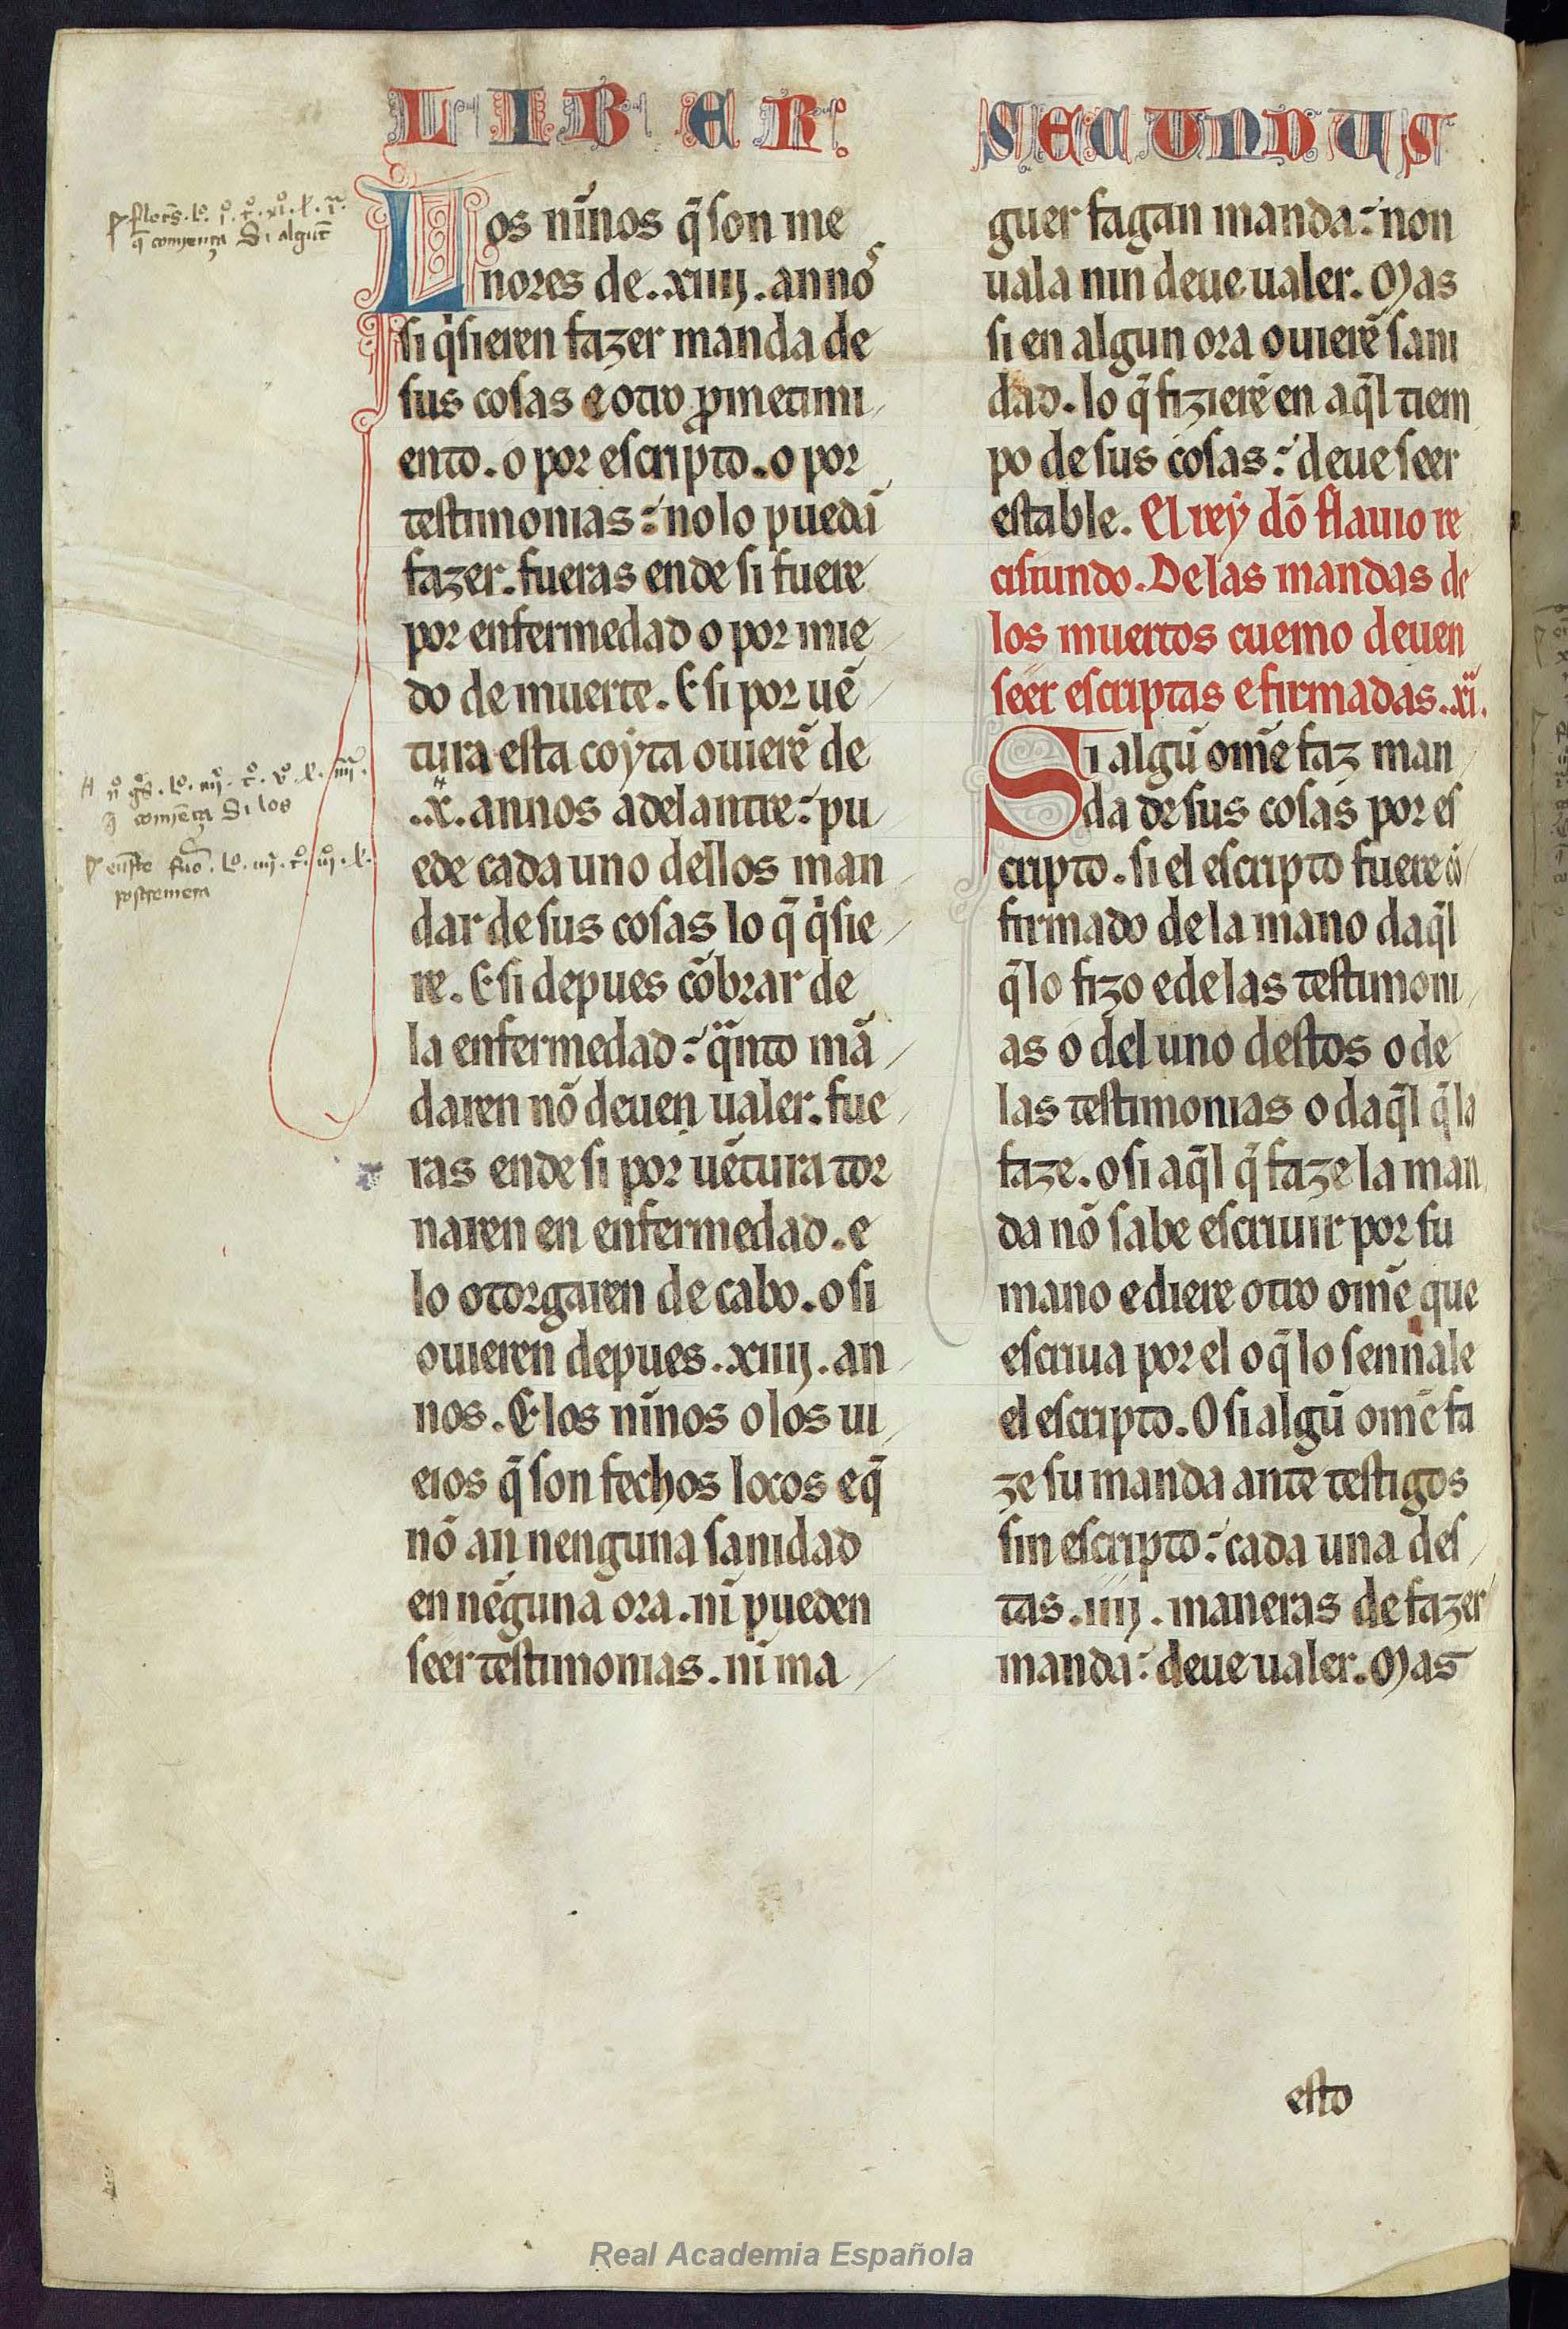 LIBER
SECUNDUS
Los nińos q̃ son me
nores de .xiiij. annos
si q̇sieren fazer manda de
sus cosas e otro ꝓmetimi
ento. o por escripto. o por
testimonias: no lo puedã
fazer. fueras ende si fuere
por enfermedad o por mie
do de muerte. E si por uẽ
tura esta coyta ouierẽ de
.x. annos adelantre: pu
ede cada uno dellos man
dar de sus cosas lo q̃ q̇sie
re. E si depues cõbrar de
la enfermedad: q̈nto mã
daren nõ deuen ualer. fue
ras ende si por uẽtura tor
naren en enfermedad. e
lo otorgaren de cabo. o si
ouieren depues .xiiij. an
nos. E los nĩnos o los ui
eios q̃ son fechos locos e q̃
nõ an nenguna sanidad
en nẽguna ora. nĩ pueden
seer testimonias. nĩ ma
guer fagan manda: non
uala nin deue ualer. Mas
si en algun ora ouierẽ sani
dad. lo q̃ fizierẽ en aq̃l tiem
po de sus cosas: deue seer
estable. El rey dõ flauio re
cisiundo. De las mandas de
los muertos cuemo deuen
seer escriptas e firmadas. .xi.
Si algũ om̃e faz man
da de sus cosas por es
cripto. si el escripto fuere cõ
firmado de la mano daq̃l
q̃ lo fizo e de las testimoni
as o del uno destos o de
las testimonias o daq̃l q̃ la
faze. o si aq̃l q̃ faze la man
da nõ sabe escriuir por su
mano e diere otro om̃e que
escriua por el o q̃ lo sennale
el escripto. O si algũ om̃e fa
ze su manda ante testigos
sin escripto: cada una des
tas .iiij. maneras de fazer
manda: deue ualer. Mas
esto
q̃ comiença Si algũt
q̃ comiẽça Si los
postremera
Real Academia Española